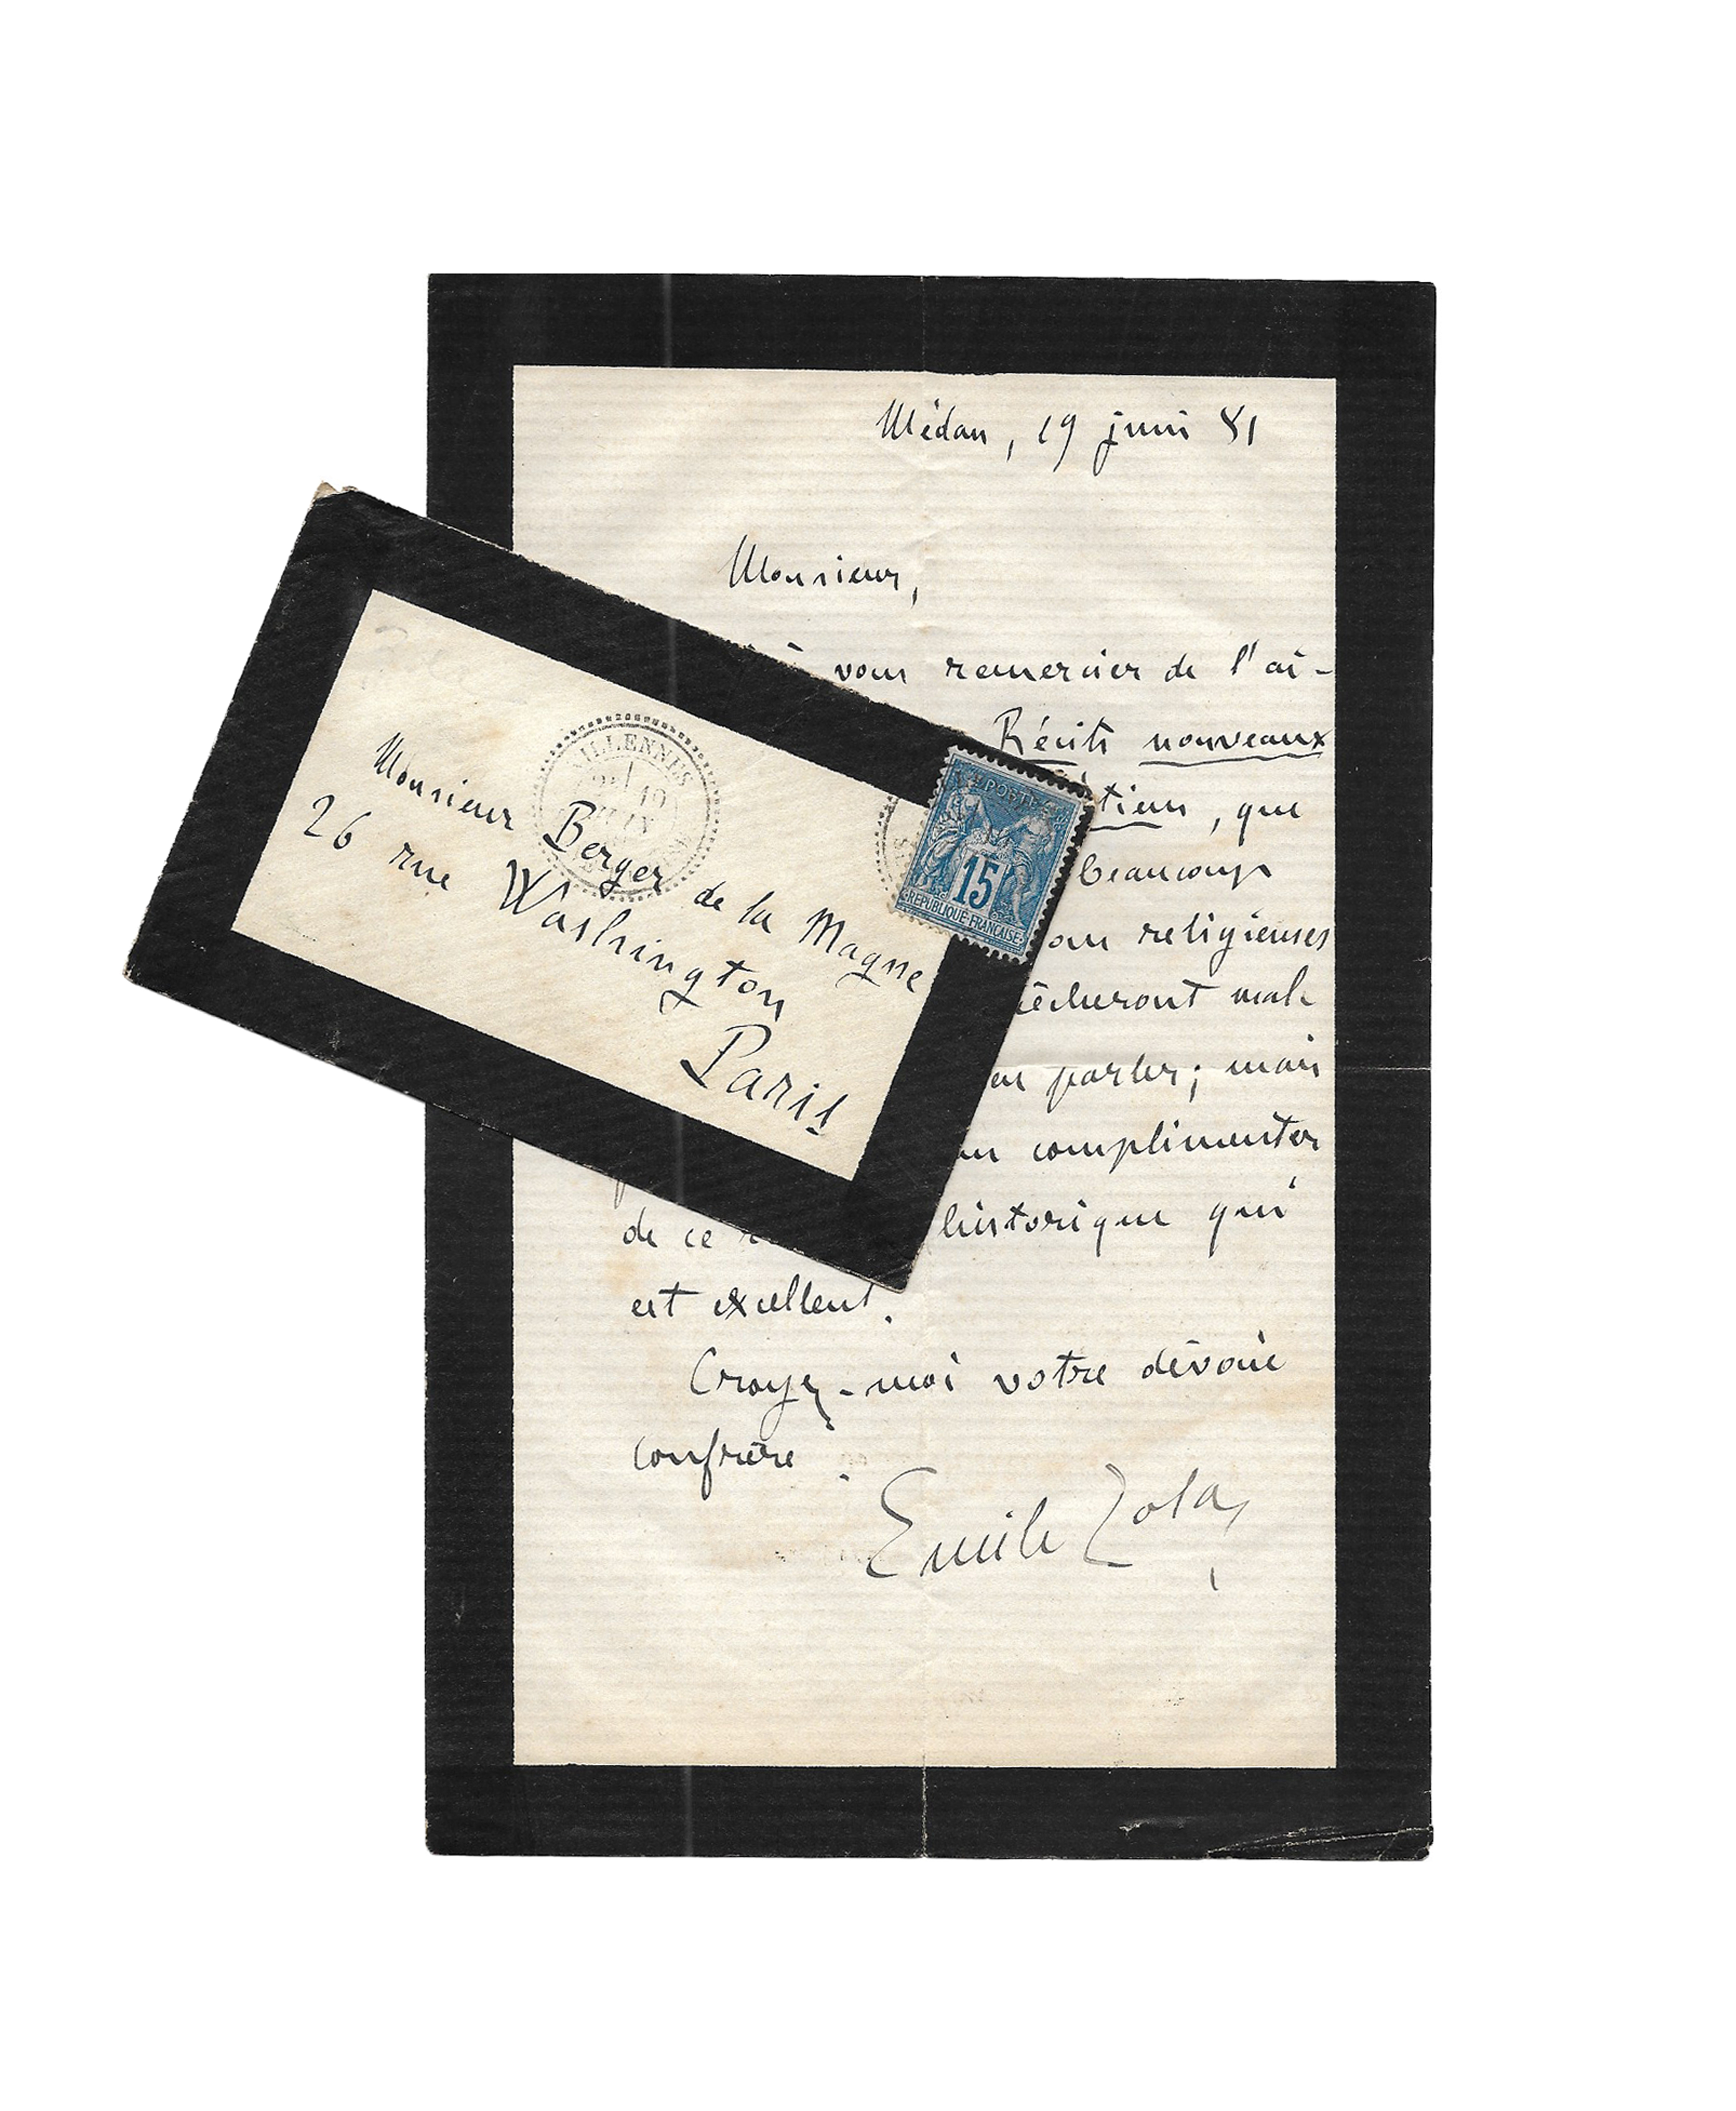 Médan, 19 juin 81
Monsieur,
vous remercier de l'ai-
Récits nouveaux
tien, que
beaucoup
religieuses
mal
parler; mais
complimenter
de ce historique qui
est excellent.
Croyez-moi votre dévoué
confrère.
Emile Zola
VILLENNES
19
JUIN
Monsieur Berger de la Magne
26 rue Washington
Paris
POSTES
15
REPUBLIQUE FRANCAISE